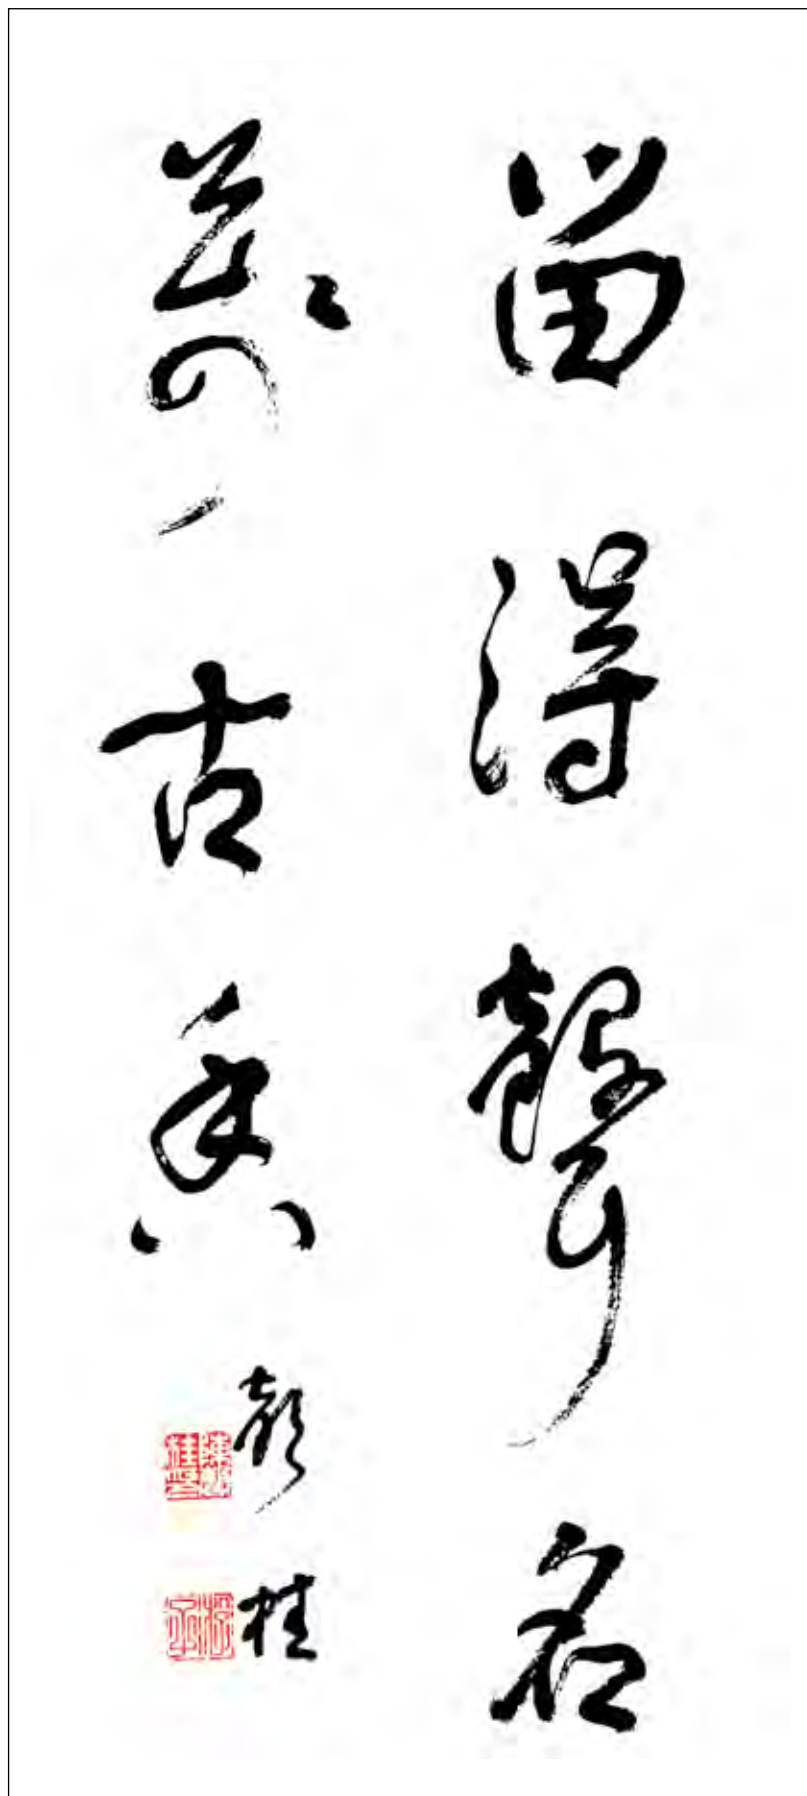 留得聲名
萬古香
彭桂